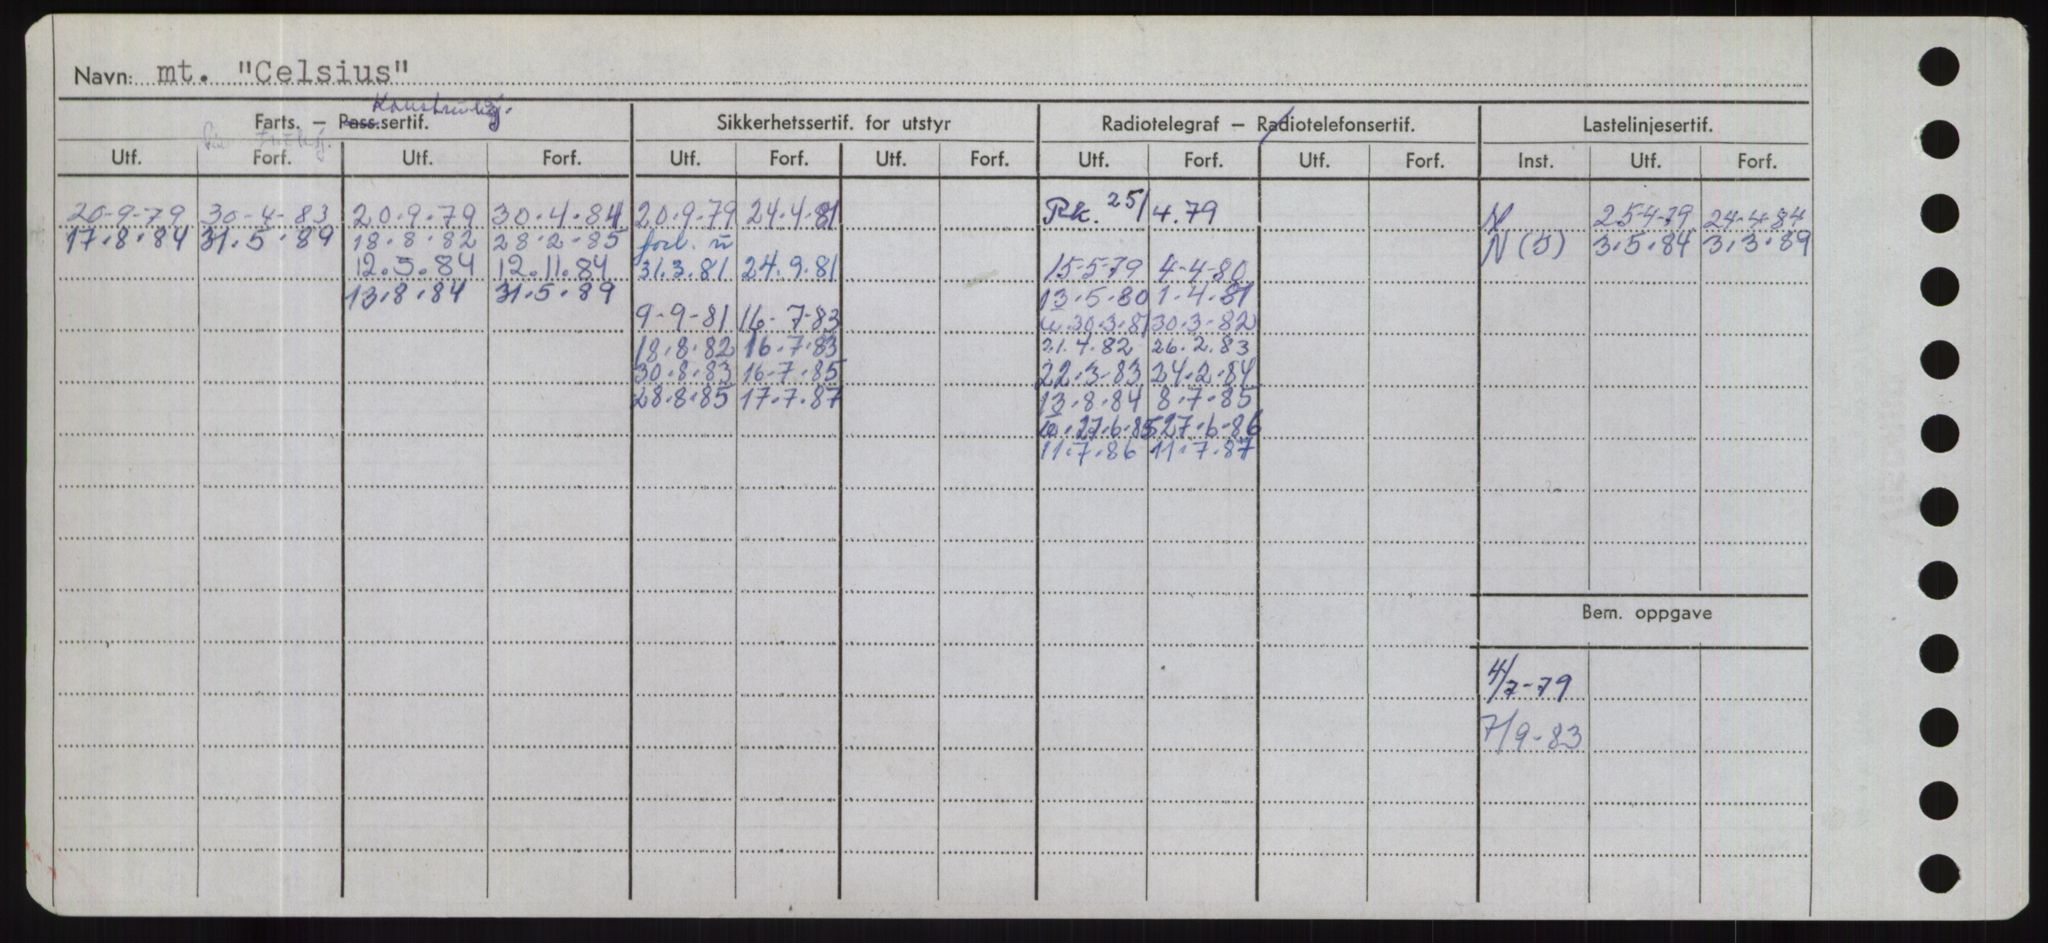 Navn: mt. "Celsius"
Konstruksj.
Farts. — Pass.sertif. Sikkerhetssertif. for utstyr Radiotelegraf — Radiotelefonsertif. Lastelinjesertif.
Utf. Forf. Utf. Forf. Utf. Forf. Utf. Forf. Utf. Forf. Utf. Forf. Inst. Utf. Forf.
20-9-79 30-4-83 20.9.79 30.4.84 20.9.79 24.4.81 Rk. 25/4.79 N 25-4-79 24-4-84
17.8.84 31.5.89 18.8.82 28.2.85 forl. N (J) 3.5.84 3.3.89
12.5.84 12.11.84 31.3.81 24.9.81 15-5-79 4-4-80
13.8.84 31.5.89 13.5.80 1.4.81
9-9-81 16-7-83 30.3.81 30.3.82
18.8.82 16.7.83 21.4.82 26.2.83
30.8.83 16-7.85 22.3.83 24.2.84
28.8.85 17.7.87 13.8.84 8.7.85
27.6.85 27.6.86
11.7.86 11.7.87
Bem. oppgave
4/7-79
7/9-83